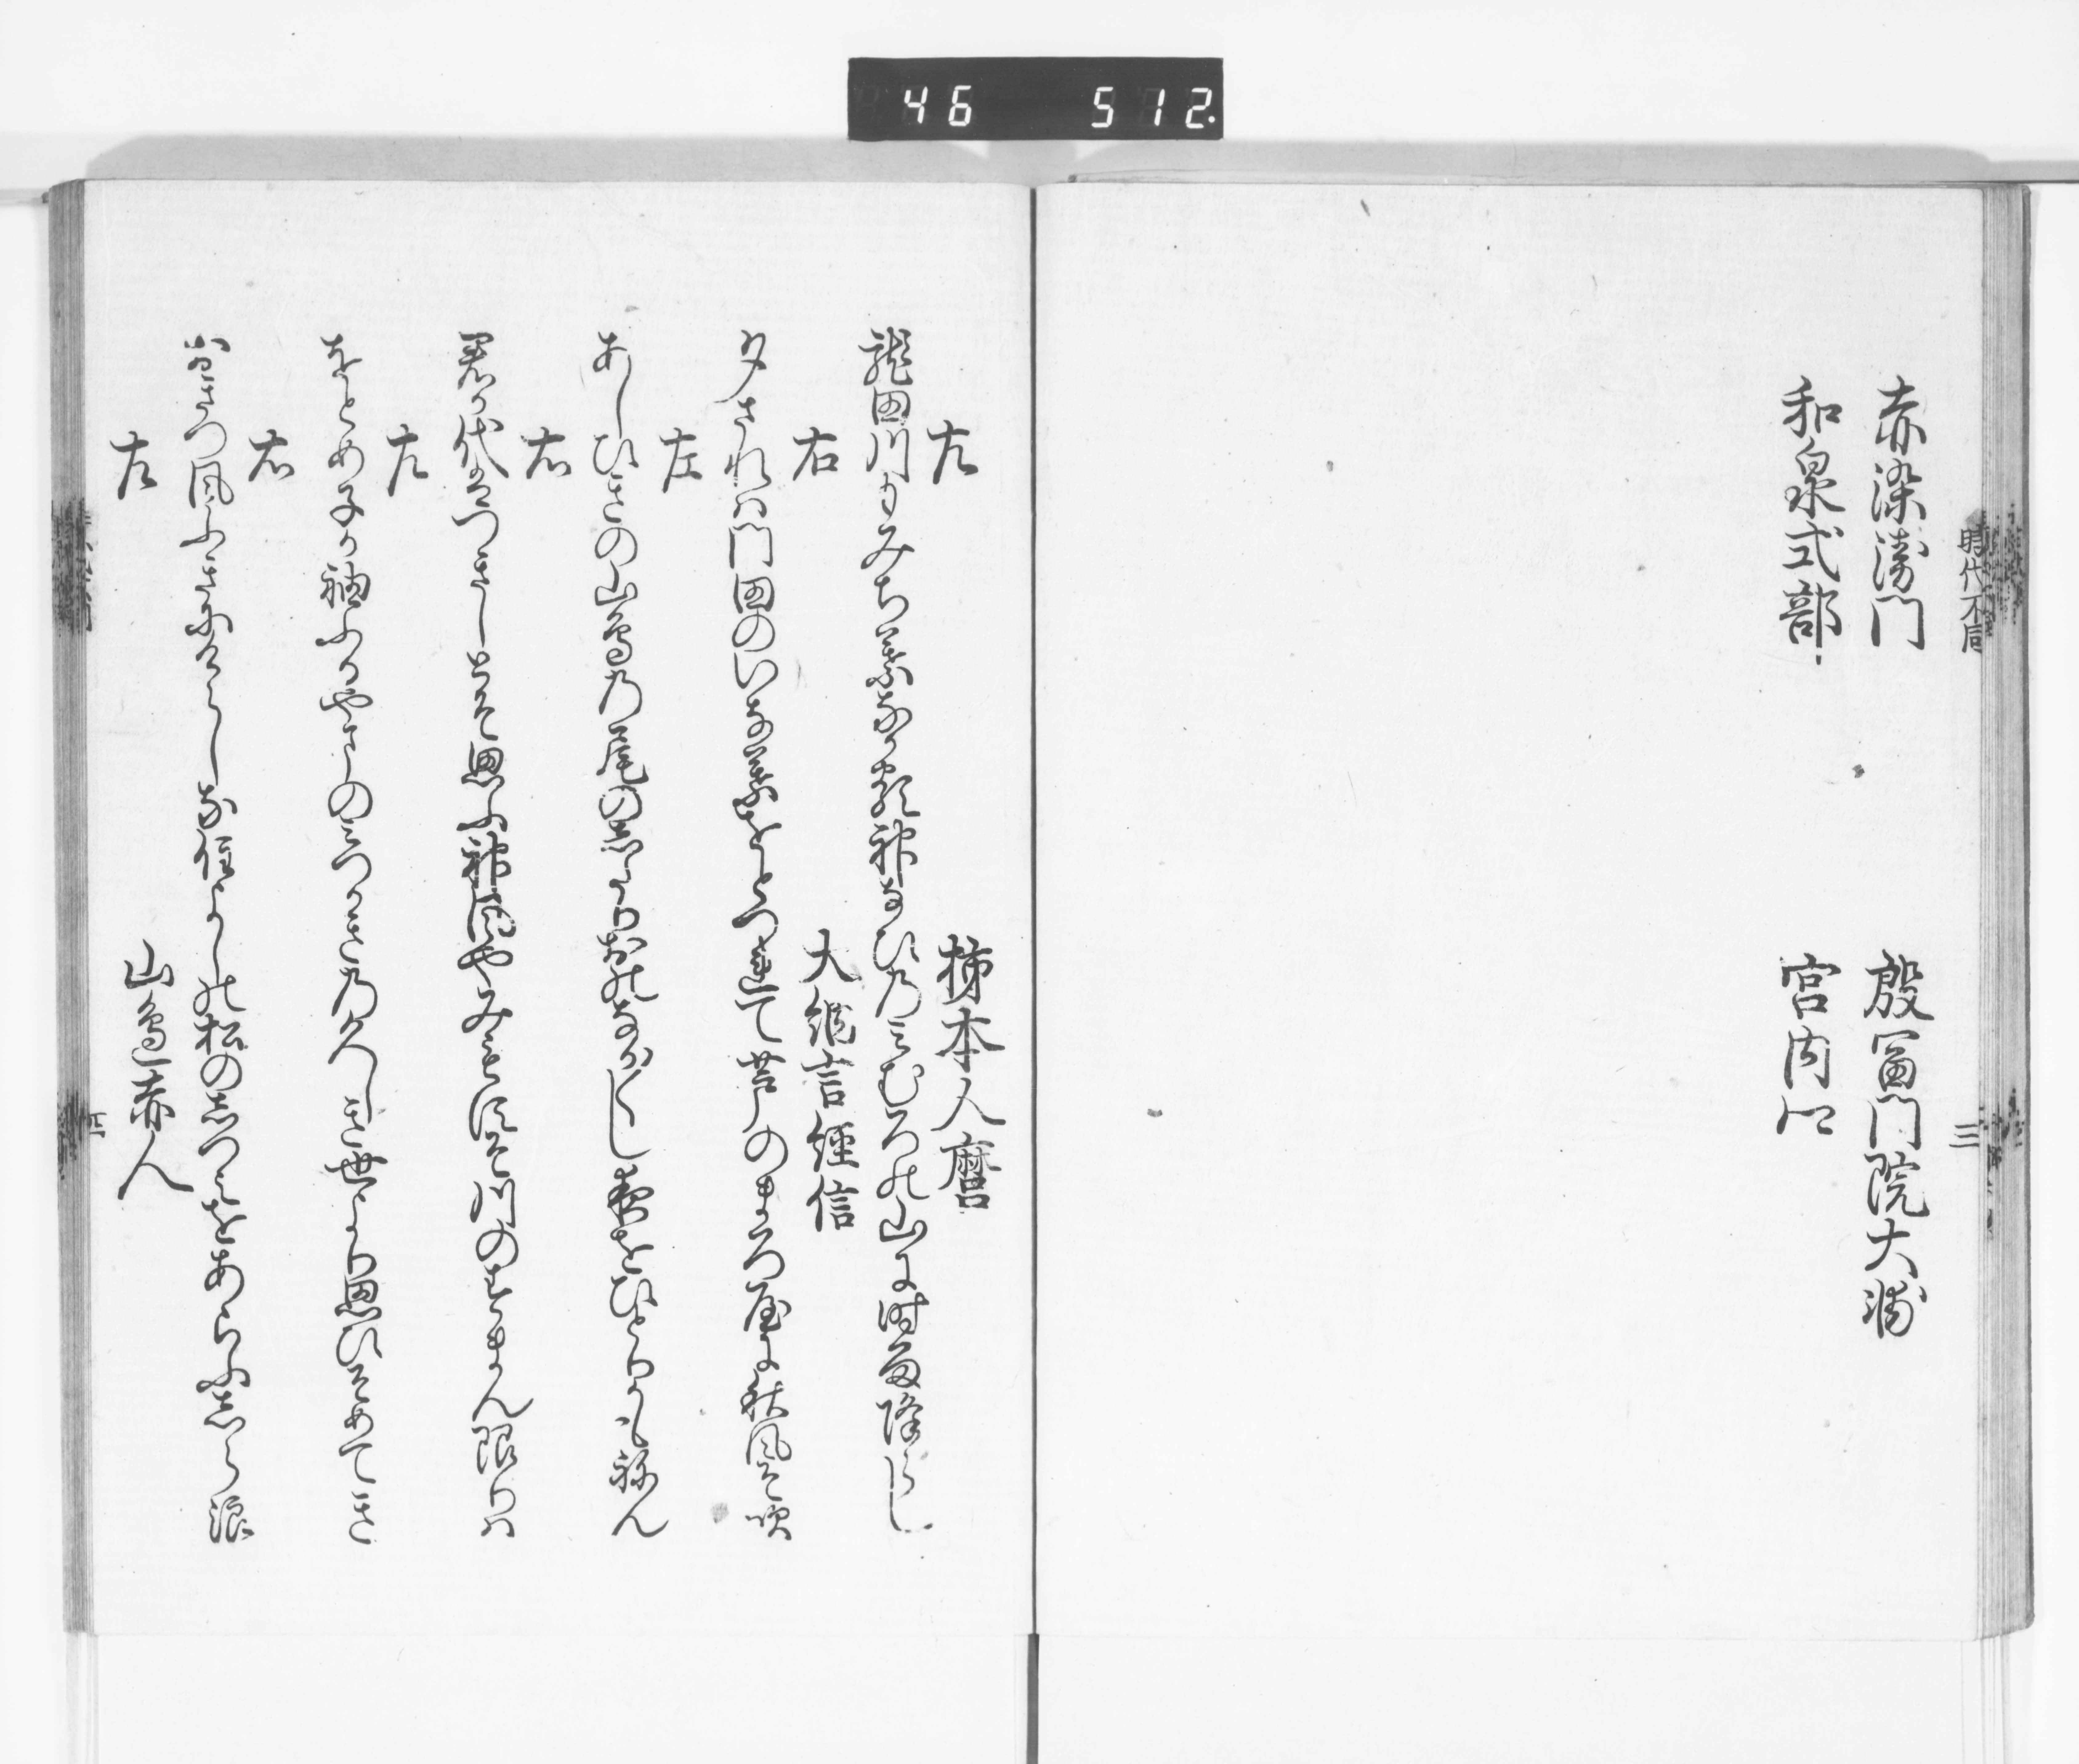 46 512.
赤染衛門 殷富門院大輔
和泉式部 宮内卿
時代不同 三
左 柿本人麿
龍田川もみち葉なかる神なひのみむろの山に時雨降らし
右 大納言経信
夕されは門田のいな葉をとつれて芦のまろ屋に秋風そ吹
左
あしひきの山鳥の尾のしたりおのなか〳〵し夜をひとりかもねん
右
君か代はつきしとそ思ふ神風やみもすそ川のすまん限りは
左
をとめ子か袖ふるやまのみつかきの久しき世より思ひそめてき
右
おきつ風ふきにけらしな住よしの松のしつえをあらふしら浪
左 山邊赤人